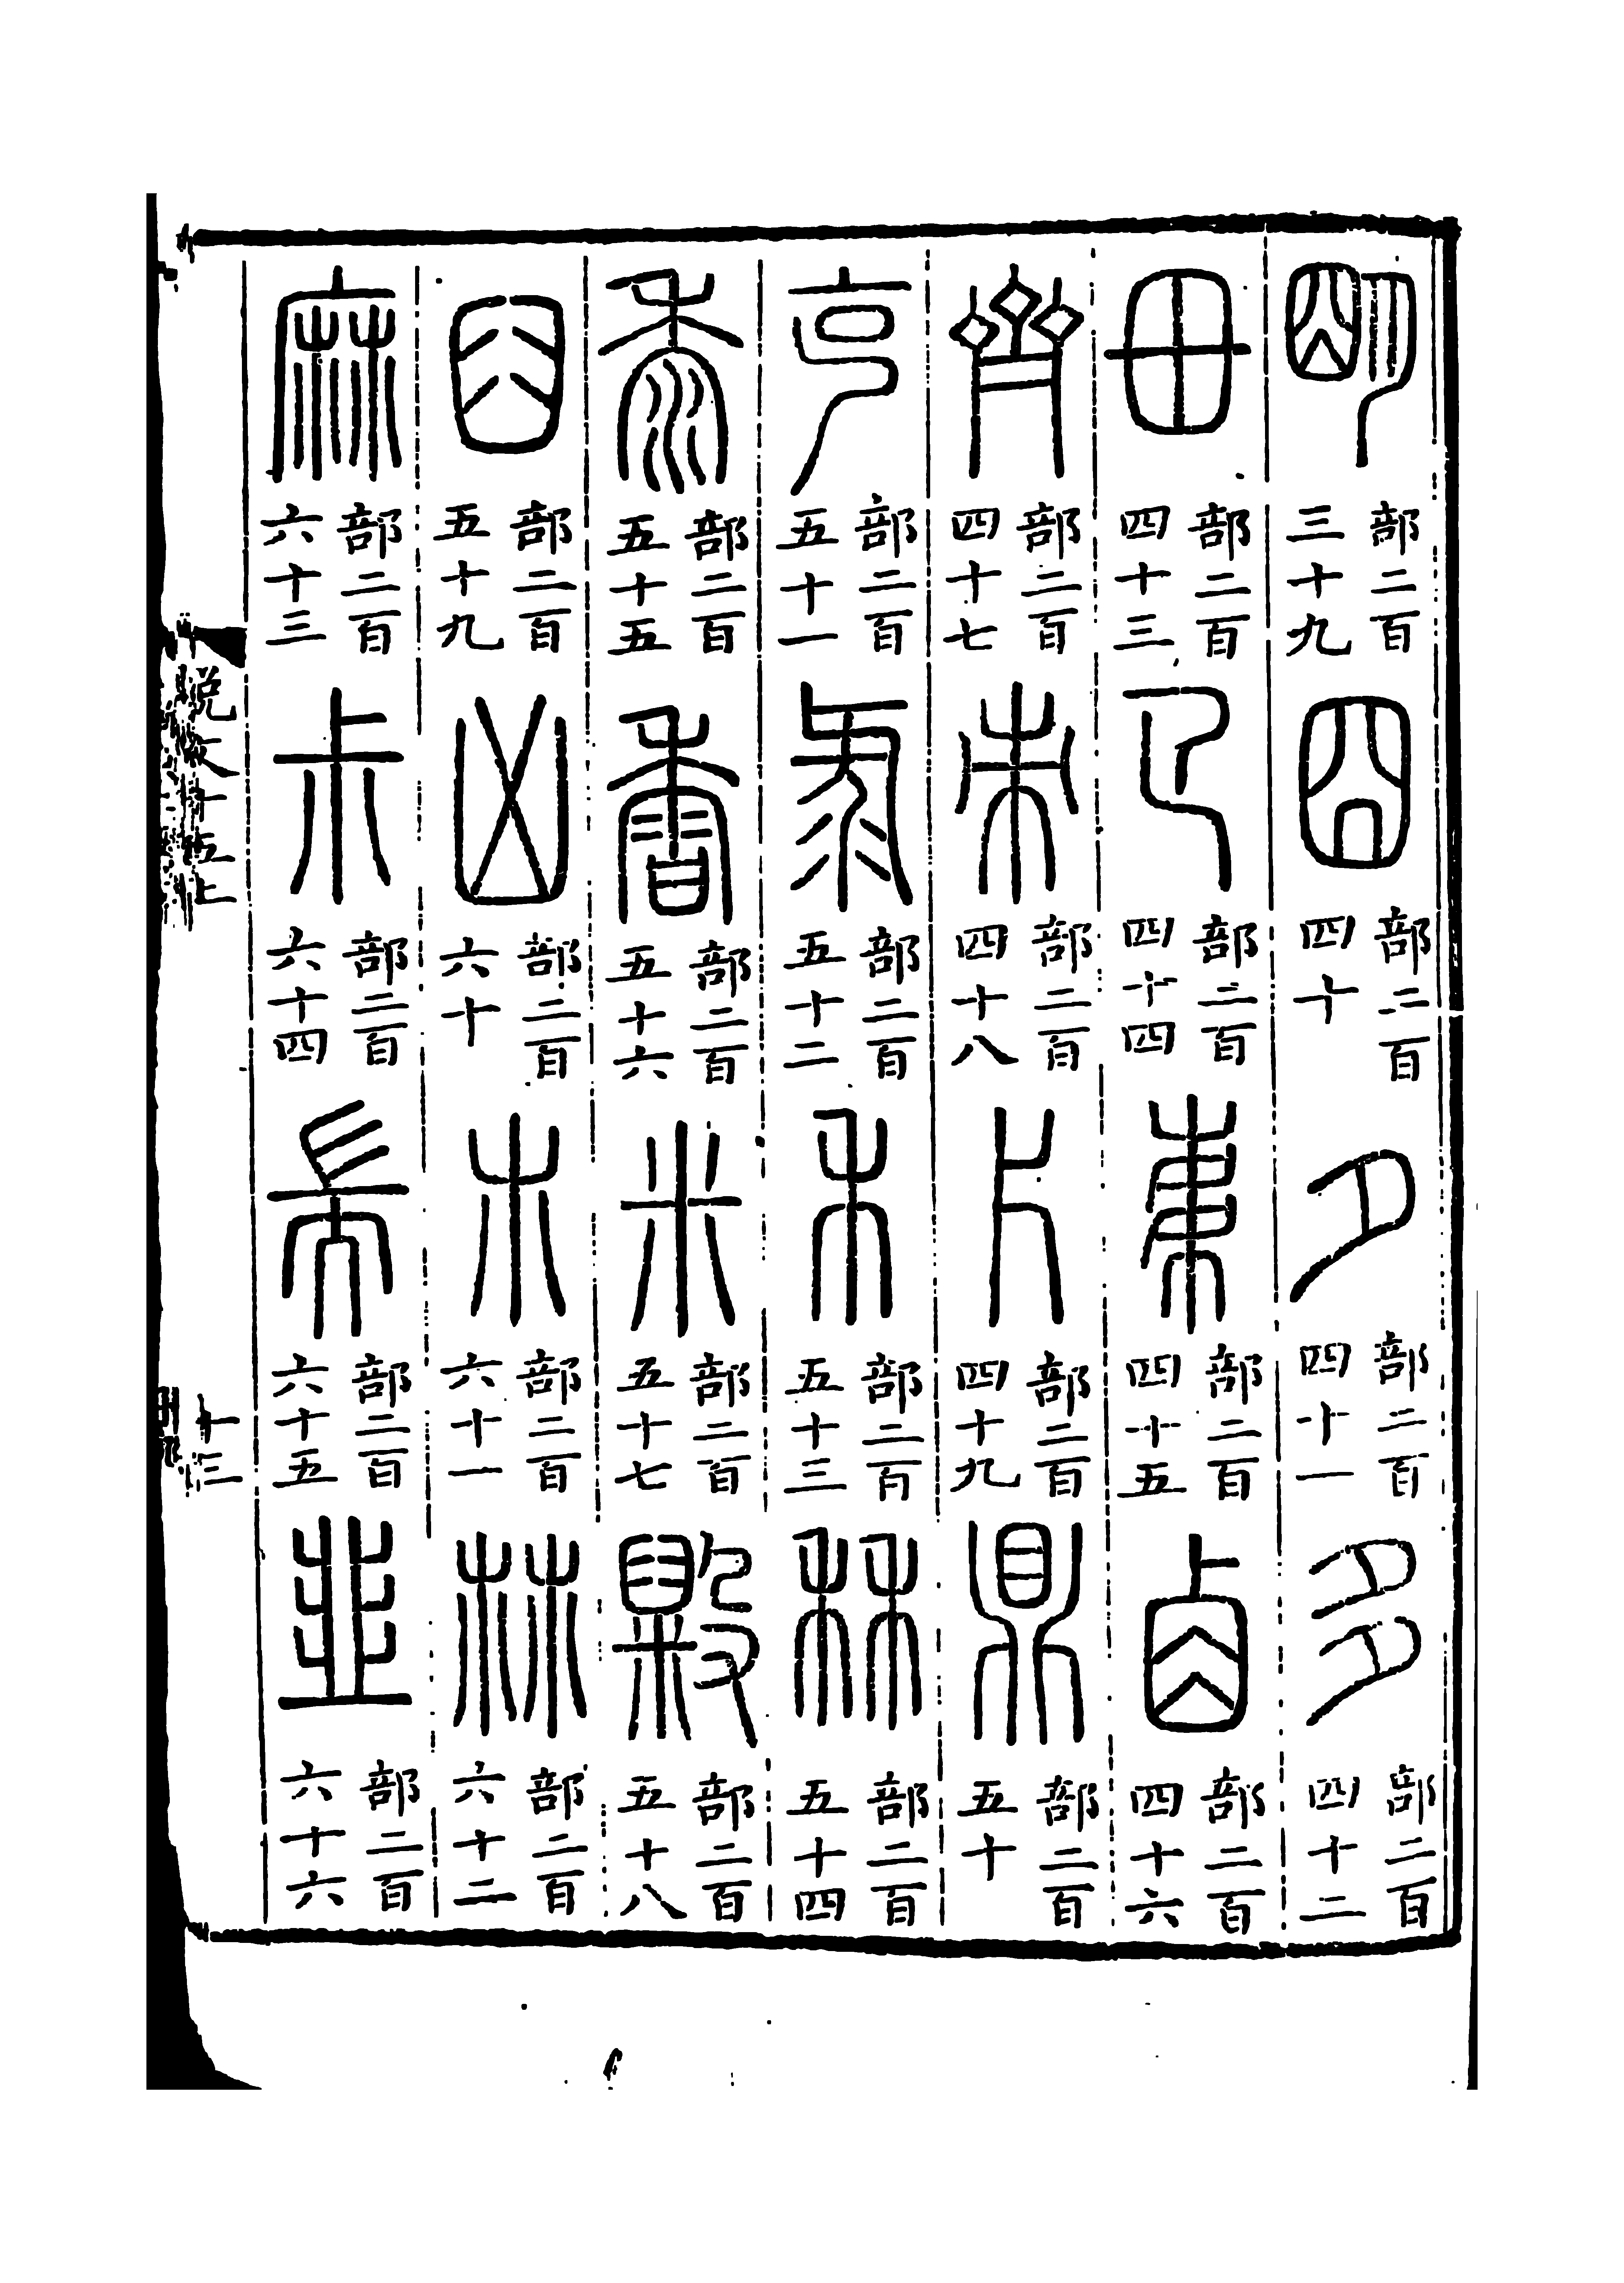 朙部二百三十九 囧部二百四十 夕部二百四十一 多部二百四十二
毌部二百四十三 𢎘部二百四十四 𣐺部二百四十五 卤部二百四十六
齊部二百四十七 朿部二百四十八 片部二百四十九 鼎部二百五十
克部二百五十一 彔部二百五十二 禾部二百五十三 秝部二百五十四
黍部二百五十五 香部二百五十六 米部二百五十七 毇部二百五十八
臼部二百五十九 凶部二百六十 朩部二百六十一 𣏟部二百六十二
麻部二百六十三 尗部二百六十四 耑部二百六十五 韭部二百六十六
説文十五上 十三